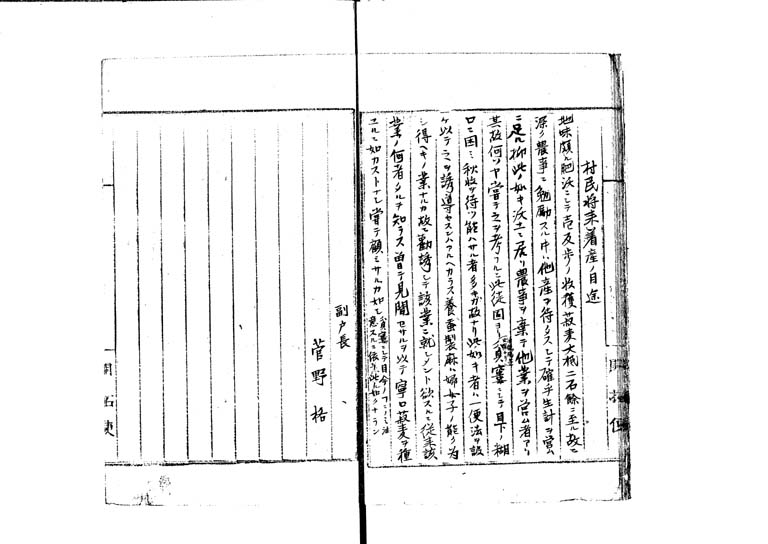 村民将来著産ノ目途
地味頗ル肥沃ニシテ壱反歩ノ收獲菽麦大抵二石餘ニ至ル故ニ
深ク農事ニ勉励スル中ハ他産ヲ待タスシテ確乎生計ヲ営ム
ニ足ル抑此ノ如キ沃土ニ居リ農事ヲ棄テ他業ヲ営ム者アリ
其故何ソヤ嘗テ之ヲ考フルニ従 貧窶ニシテ目下ノ糊
口ニ困ミ秋收ヲ待ツ能ハサル者多キカ故ナリ此如キ者ハ一便法ヲ設
ケ以テ之ヲ誘導セスンハアルヘカラス養蚕製麻ハ婦女子ノ能ク為
シ得ヘキノ業ナルカ故ニ勧誘シテ該業ニ就シメント欲スルニ従来該
業ノ何者タルヲ知ラス曽テ見聞セサルヲ以テ寧ロ菽麦ヲ種
ユルニ如カストナシ嘗テ顧ミサルカ如シ貧窶ニシテ目今ノ
副戸長
菅野格
開拓使
開拓使